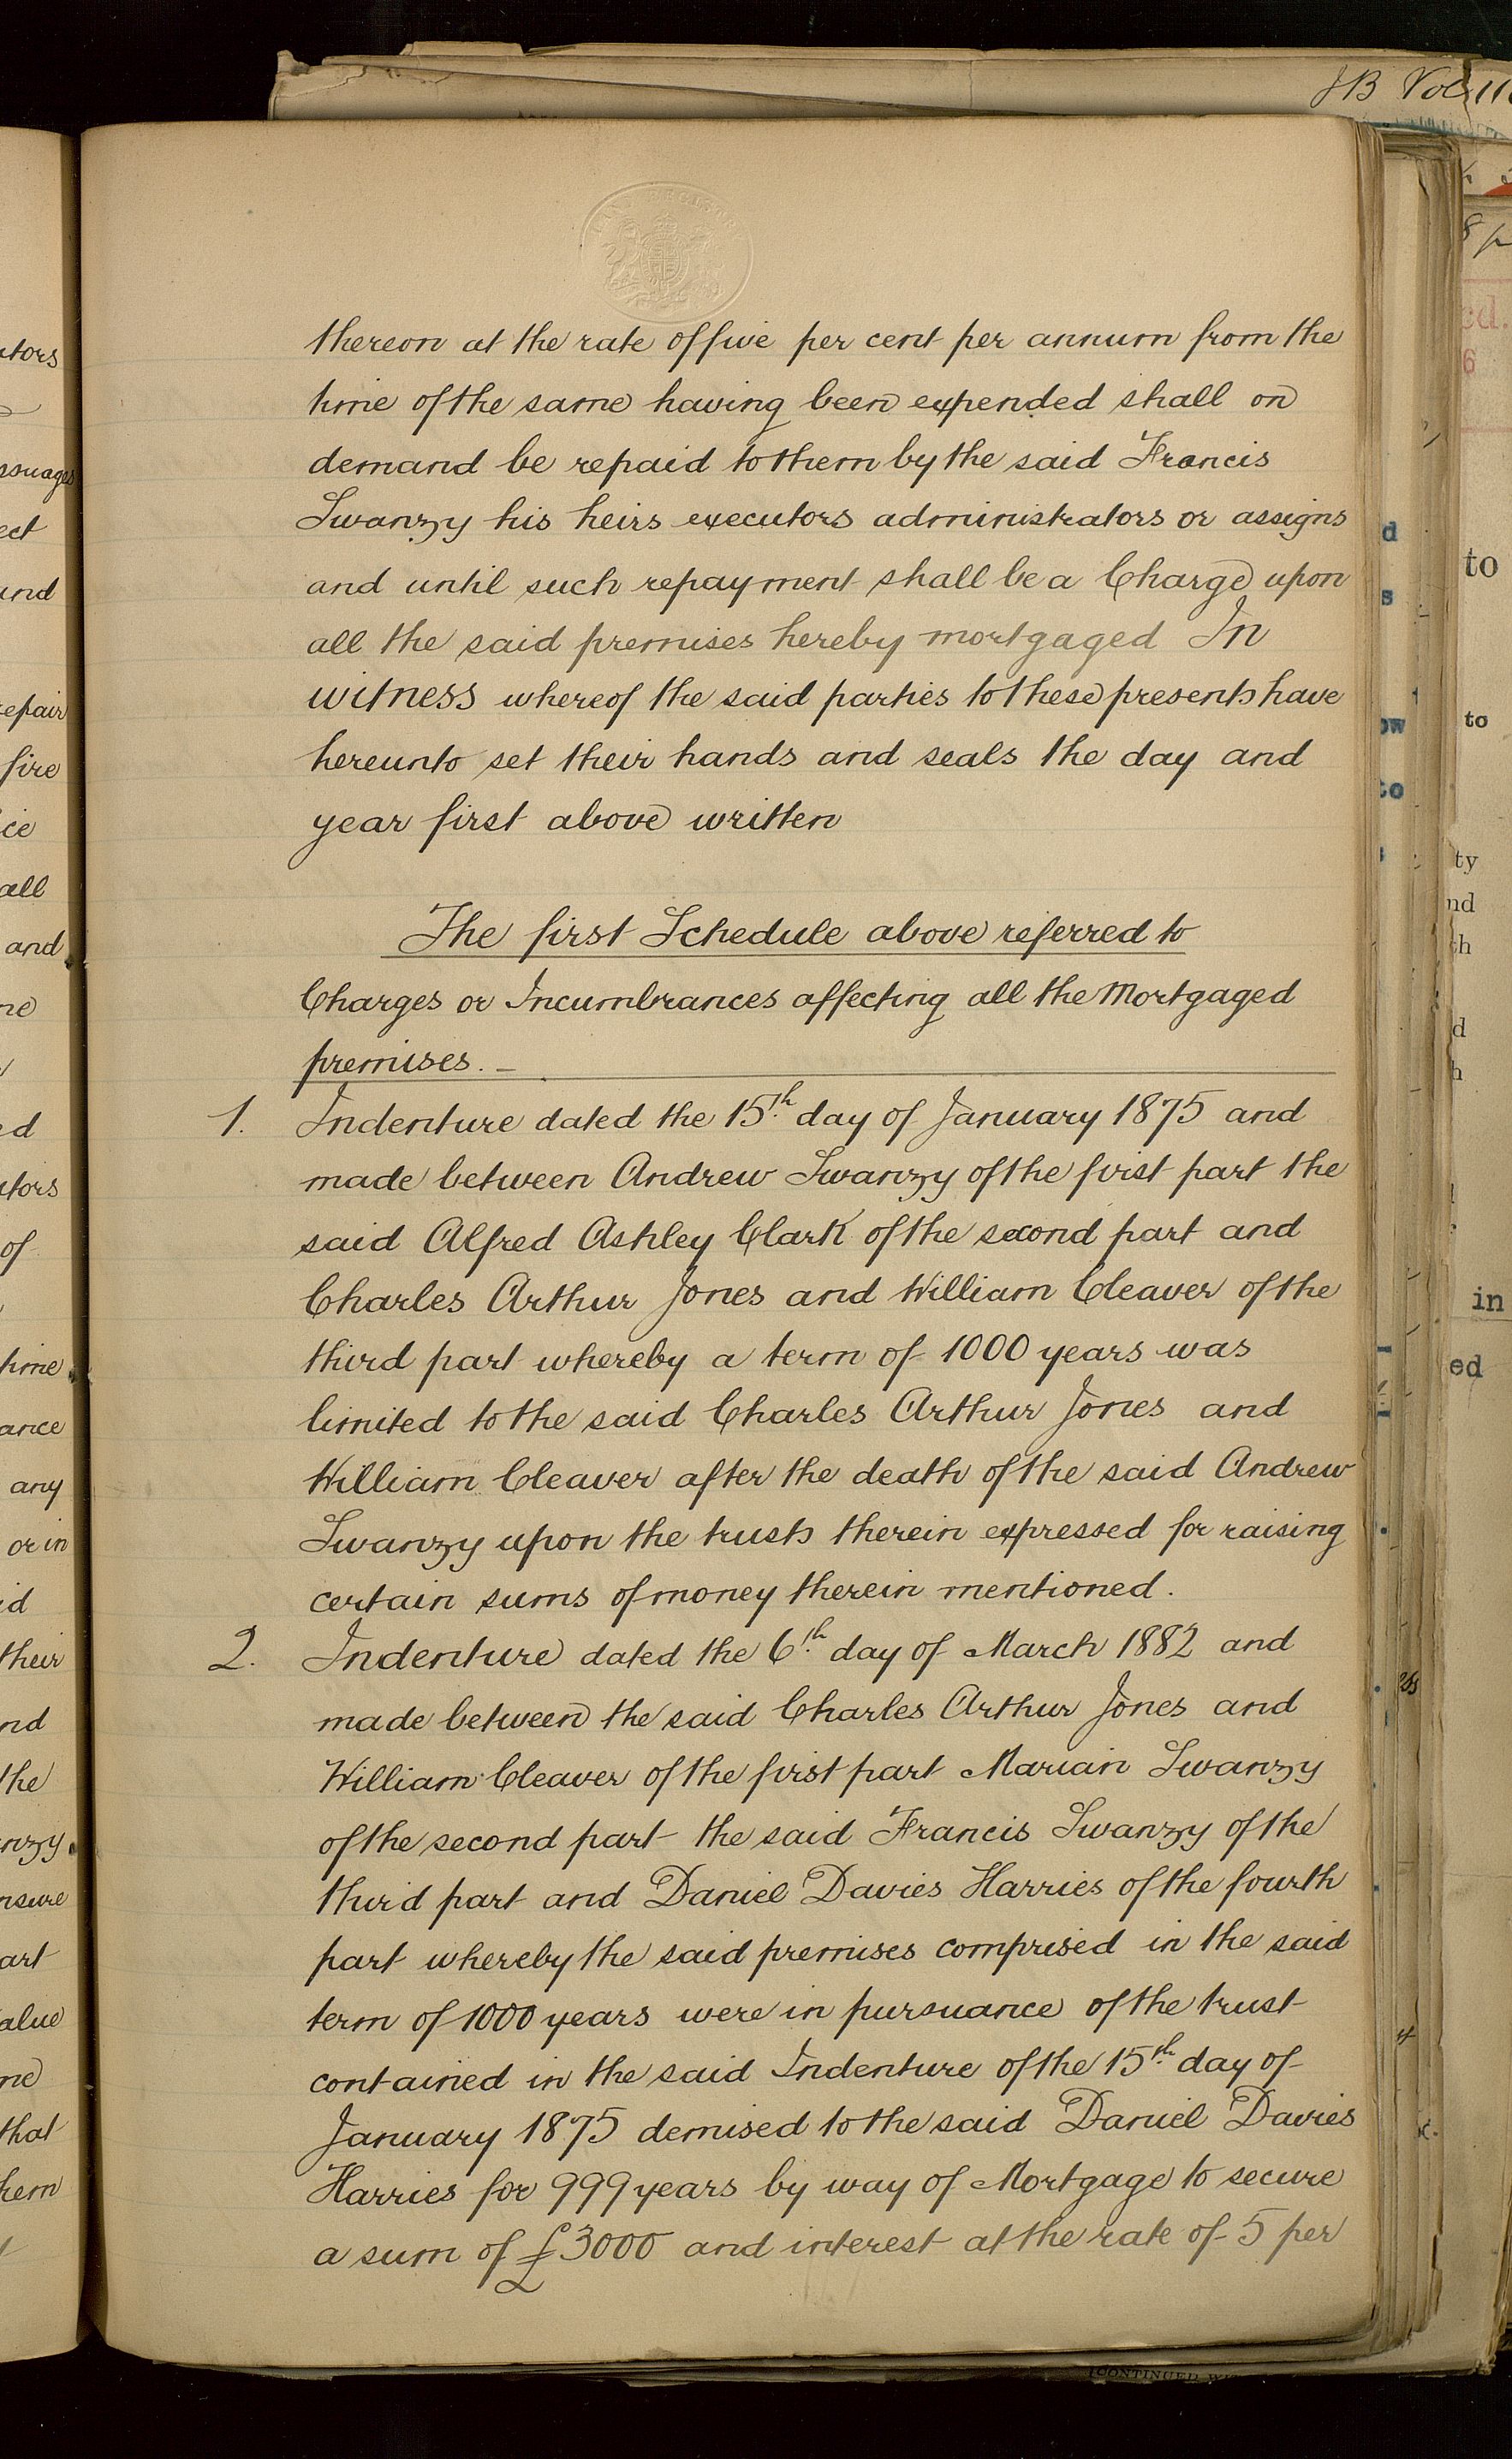 JB Vol 11
thereon at the rate of five per cent per annum from the
time of the same having been expended shall on
demand be repaid to them by the said Francis
Swanzy his heirs executors administrators or assigns
and until such repayment shall be a Charge upon
all the said premises hereby mortgaged In
witness whereof the said parties to these presents have
hereunto set their hands and seals the day and
year first above written
The first Schedule above referred to
Charges or Incumbrances affecting all the Mortgaged
premises. –
1. Indenture dated the 15th day of January 1875 and
made between Andrew Swanzy of the first part the
said Alfred Ashley Clark of the second part and
Charles Arthur Jones and William Cleaver of the
third part whereby a term of 1000 years was
limited to the said Charles Arthur Jones and
William Cleaver after the death of the said Andrew
Swanzy upon the trusts therein expressed for raising
certain sums of money therein mentioned.
2. Indenture dated the 6th day of March 1882 and
made between the said Charles Arthur Jones and
William Cleaver of the first part Marian Swanzy
of the second part the said Francis Swanzy of the
third part and Daniel Davies Harries of the fourth
part whereby the said premises comprised in the said
term of 1000 years were in pursuance of the trust
contained in the said Indenture of the 15th day of
January 1875 demised to the said Daniel Davies
Harries for 999 years by way of Mortgage to secure
a sum of £3000 and interest at the rate of 5 per